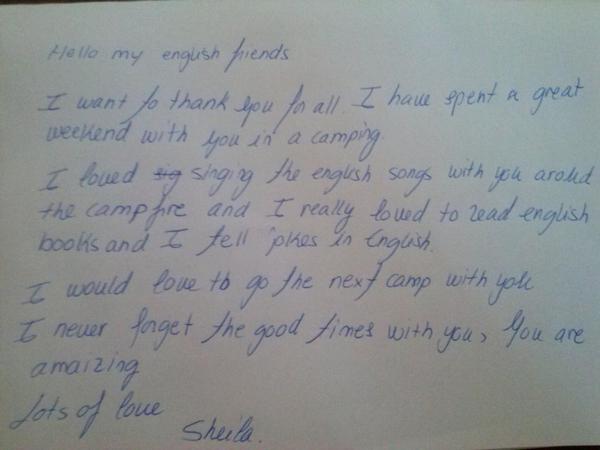 Hello my english friends
I want to thank you for all. I have spent a great
weekend with you in a camping.
I loved sig singing the english songs with you around
the campfire and I really loved to read english
books and I tell jokes in English.
I would love to go the next camp with you
I never forget the good times with you, You are
amaizing
Lots of love
Sheila.